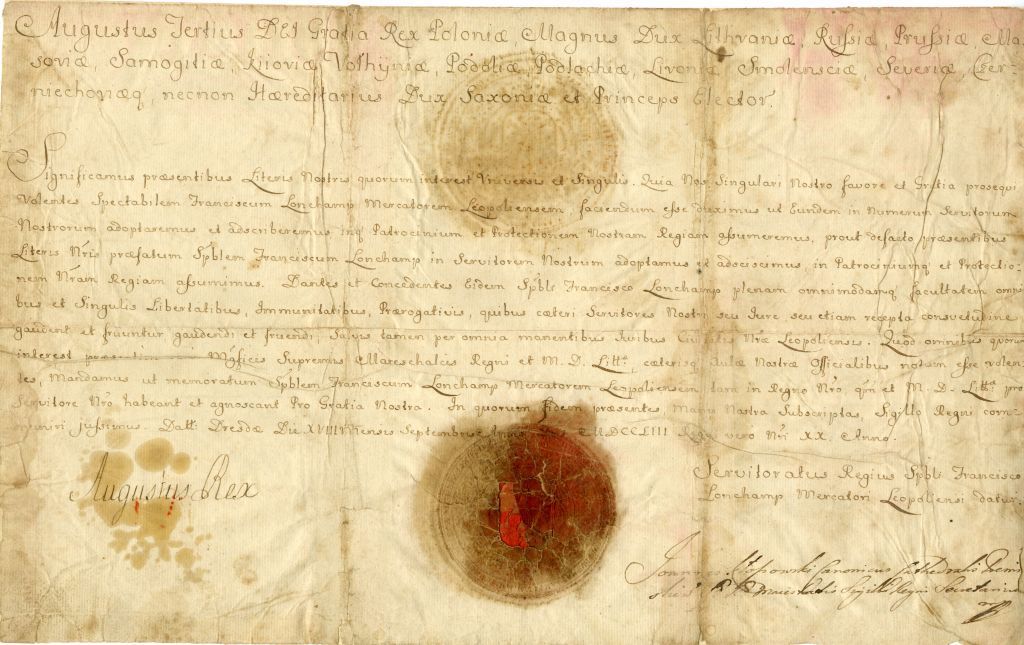 Augustus Tertius DEI Gratia Rex Poloniæ, Magnus Dux Lithvaniæ, Russiæ, Prussiæ, Ma-
soviæ, Samogitiæ, Kijoviæ, Volhyniæ, Podoliæ, Podlachiæ, Livoniæ Smolensciæ, Severiæ, Czer-
niechoviæq, necnon Hæreditarius Dux Saxoniæ et Princeps Elector.
Significamus præsentibus Literis Nostris quorum interest Universis et Singulis. Quia Nos Singulari Nostro favore et Gratia prosequi
Volentes Spectabilem Franciscum Lonchamp Mercatorem Leopoliensem, faciendum esse duximus ut Eundem in Numerum Servitorum
Nostrorum adoptaremus et adscriberemus, inq Patrocinium et Protectionem Nostram Regiam assumeremus, prout defacto præsentibus
Literis Nris præfatum Spblem Franciscum Lonchamp in Servitorem Nostrum adoptamus et adsciscimus, in Patrociniumq et Protectio-
nem Nram Regiam assumimus. Dantes et Concedentes Eidem Spbli Francisco Lonchamp plenam omnimodamq facultatem omni
bus et Singulis Libertatibus, Immunitatibus, Prærogativis, quibus cæteri Servitores Nostri seu Jure, seu etiam recepta consvetudine
gaudent et fruuntur gaudendi et fruendi, Salvis tamen per omnia manentibus Juribus Civitatis Nræ Leopoliensis. Quod omnibus quorum
interest Mgficis Supremis Mareschalcis Regni et M. D. Litt. cæterisq Aulæ Nostræ Officialibus notum esse volen-
tes, Mandamus ut memoratum Spblem Franciscum Lonchamp Mercatorem Leopoliensem tam in Regno Nro qm et M. D. Litt. pro
Servitore Nro habeant et agnoscant Pro Gratia Nostra. In quorum fidem præsentes, Manu Nostra Subscriptas, Sigillo Regni com-
muniri jussimus. Datt. Dresdæ Die XVIII Mensis Septembris Anno MDCCLIII Regni vero Nri XX Anno.
Augustus Rex
Servitoratus Regius Spbli Francisco
Lonchamp Mercatori Leopoliensi datur.
Canonicus Cathedralis Premi
Sigilli Regni Secretarius